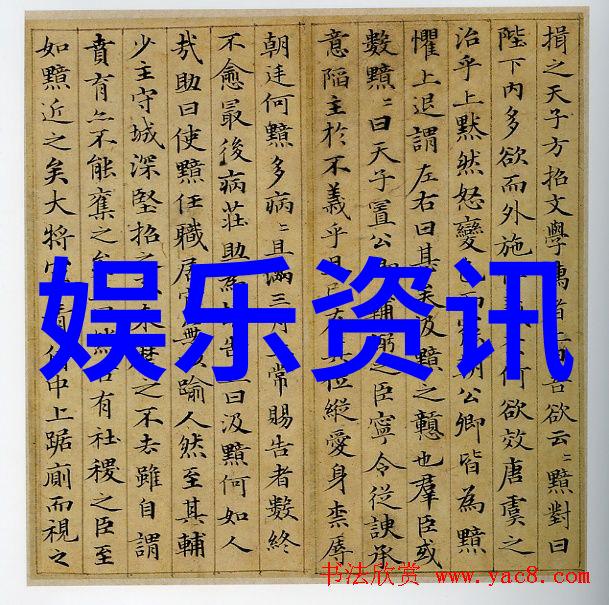 損之天子方招文學儒者上曰吾欲云〻黯對曰
陛下內多欲而外施義何欲效唐虞之
治乎上黙然怒變而罷朝公卿皆為黯
懼上退謂左右曰甚矣汲黯之戇也羣臣或
數黯〻曰天子置公輔弼之臣寧令從諛承
意陷主於不義乎且已在其位縱愛身柰辱
朝廷何黯多病〻且滿三月常賜告者數終
不愈最後病莊助為告曰汲黯何如人
㢤助曰使黯任職居官無以踰人然至其輔
少主守城深堅招之來麾之不去雖自謂
賁育亦不能奪之矣曰然古有社稷之臣至
如黯近之矣大將青侍中上踞廁而視之
娱乐资讯
书法欣赏 www.yac8.com